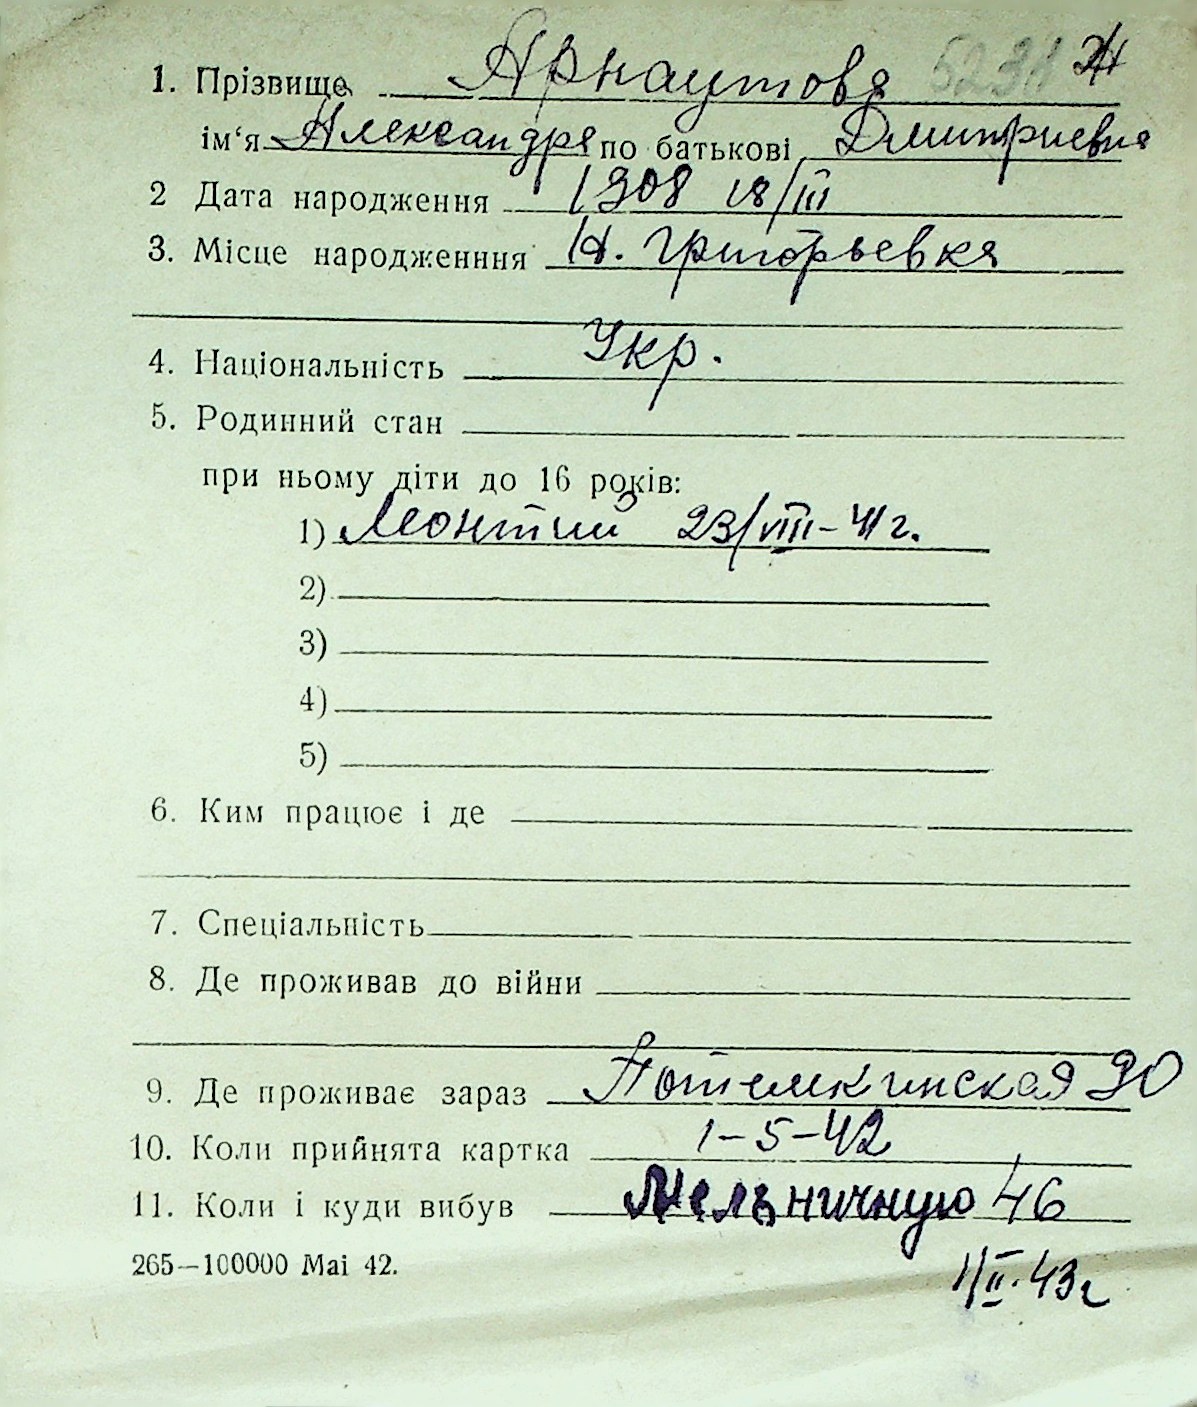 1. Прізвище Арнаутова
ім'я Александра по батькові Дмитриевна
2 Дата народження 1908 18/III
3. Місце народженння Н. Григорьевка
4. Національність Укр.
5. Родинний стан
при ньому діти до 16 років:
1) Леонтий 23/VIII-41г.
2)
3)
4)
5)
6. Ким працює і де
7. Спеціальність
8. Де проживав до війни
9. Де проживає зараз Потемкинская 90
10. Коли прийнята картка 1-5-42
11. Коли і куди вибув Мельничную 46
265—100000 Mai 42.
1/II.43г